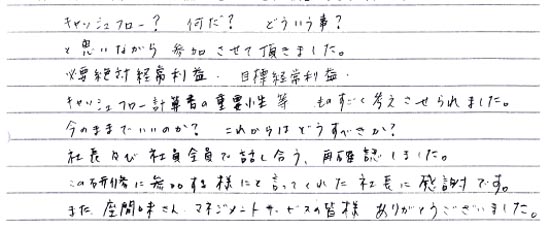 キャッシュフロー? 何だ? どういう事?
と思いながら参加させて頂きました。
必要絶対経常利益・目標経常利益・
キャッシュフロー計算書の重要性等 ものすごく考えさせられました。
今のままでいいのか? これからはどうすべきか?
社長及び社員全員で話し合う、再確認しました。
この研修に参加する様にと言ってくれた社長に感謝です。
また、座間味さん、マネジメントサービスの皆様 ありがとうございました。